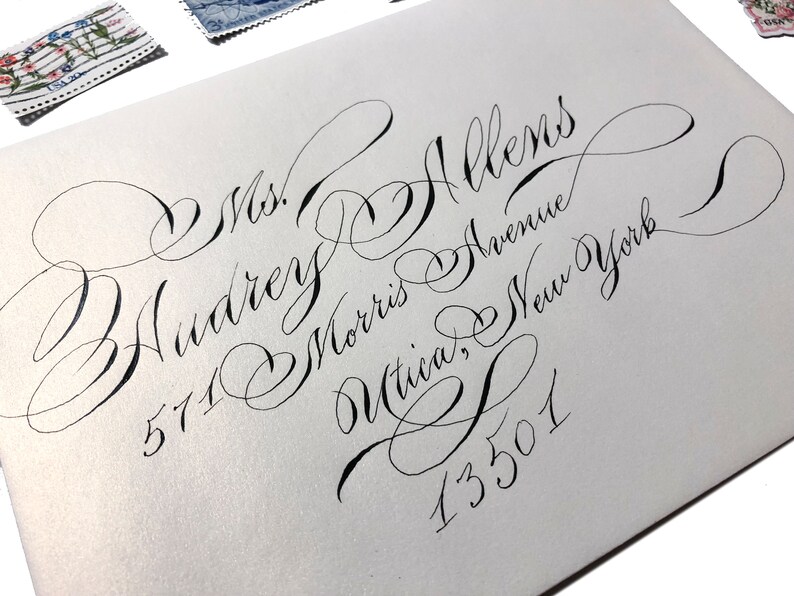 USA 20c
USA
Ms.
Audrey Allens
571 Morris Avenue
Utica, New York
13501